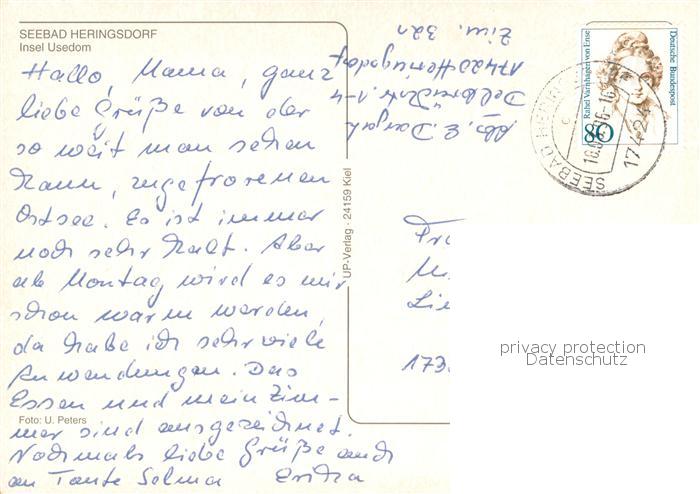 SEEBAD HERINGSDORF
Insel Usedom
Hallo, Mama, ganz
liebe Grüße von der
so weit man sehen
kann, zugefrorenen
Ostsee. Es ist immer
noch sehr kalt. Aber
ab Montag wird es mir
schon warm werden,
da habe ich sehr viele
Anwendungen. Das
Essen und mein Zim-
mer sind ausgezeichnet.
Nochmals liebe Grüße auch
an Tante Selma Erika
Foto: U. Peters
UP-Verlag · 24159 Kiel
Abs. E.
Str. 1-4
17424 Heringsdorf
Zim. 321
Deutsche Bundespost
Rahel Varnhagen von Ense
80
SEEBAD HERINGSDORF
17424
Fr
Lie
173
privacy protection
Datenschutz